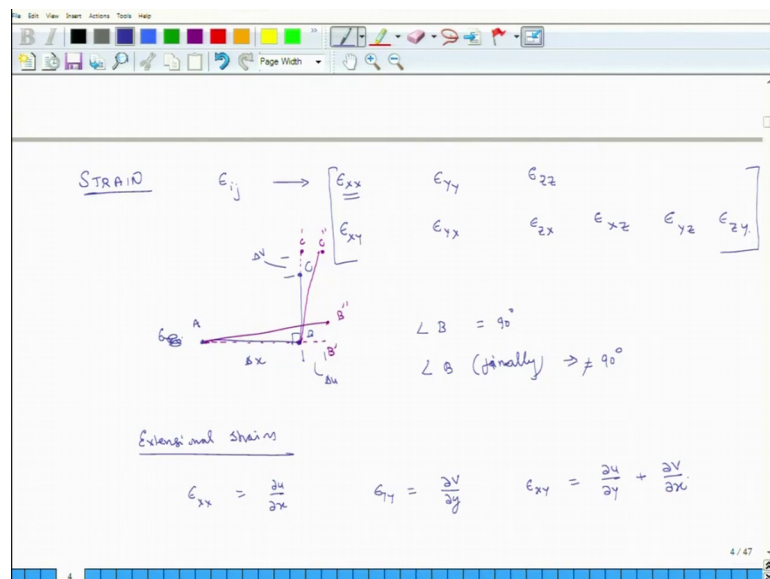 File Edit View Insert Actions Tools Help
B I
Page Width
STRAIN ϵij → [ ϵxx ϵyy ϵzz
ϵxy ϵyx ϵzx ϵxz ϵyz ϵzy ]
C' C''
ΔV
C
A
B''
B
B'
Δx
Δu
∠B = 90°
∠B (finally) → ≠ 90°
Extensional Strains
ϵxx = ∂u/∂x ϵyy = ∂V/∂y ϵxy = ∂u/∂y + ∂V/∂x
4 / 47
4